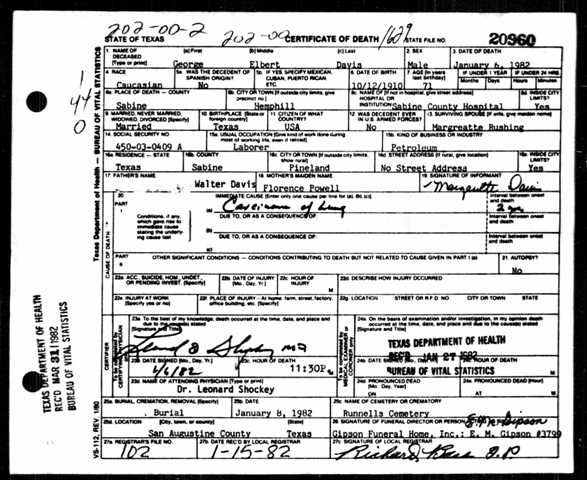 202-00-2 202-00 1629
STATE OF TEXAS CERTIFICATE OF DEATH STATE FILE NO. 20960
1. NAME OF DECEASED (Type or print) (a) First (b) Middle (c) Last 2. SEX 3. DATE OF DEATH
George Elbert Davis Male January 6, 1982
4. RACE 5a. WAS THE DECEDENT OF SPANISH ORIGIN? 5b. IF YES, SPECIFY MEXICAN, CUBAN, PUERTO RICAN ETC. 6. DATE OF BIRTH 7. AGE (In years last birthday) IF UNDER 1 YEAR IF UNDER 24 HRS.
Months Days Hours Minutes
Caucasian No 10/12/1910 71
8a. PLACE OF DEATH - County 8b. CITY OR TOWN (If outside city limits, give precinct no.) 8c. NAME OF (If not in hospital, give street address) HOSPITAL OR INSTITUTION 8d. INSIDE CITY LIMITS?
Sabine Hemphill Sabine County Hospital Yes
9. MARRIED, NEVER MARRIED, WIDOWED, DIVORCED (Specify) 10. BIRTHPLACE (State or foreign country) 11. CITIZEN OF WHAT COUNTRY? 12. WAS DECEDENT EVER IN U.S. ARMED FORCES? 13. SURVIVING SPOUSE (If wife, give maiden name)
Married Texas USA No Margreatte Rushing
14. SOCIAL SECURITY NO. 15a. USUAL OCCUPATION (Give kind of work done during most of working life, even if retired) 15b. KIND OF BUSINESS OR INDUSTRY
450-03-0409 A Laborer Petroleum
16a. RESIDENCE - STATE 16b. COUNTY 16c. CITY OR TOWN (If outside city limits, show rural) 16d. STREET ADDRESS (If rural, give location) 16e. INSIDE CITY LIMITS?
Texas Sabine Pineland No Street Address Yes
17. FATHER'S NAME 18. MOTHER'S MAIDEN NAME 19. SIGNATURE OF INFORMANT
Walter Davis Florence Powell Davis
20. PART I IMMEDIATE CAUSE (Enter only one cause per line for (a), (b), (c)) Interval between onset and death
(a) Carcinoma of lung
Conditions, if any, which gave rise to immediate cause stating the underlying cause last
DUE TO, OR AS A CONSEQUENCE OF: Interval between onset and death
(b)
DUE TO, OR AS A CONSEQUENCE OF: Interval between onset and death
(c)
PART II OTHER SIGNIFICANT CONDITIONS - CONDITIONS CONTRIBUTING TO DEATH BUT NOT RELATED TO CAUSE GIVEN IN PART I (a) 21. AUTOPSY?
No
22a. ACC., SUICIDE, HOM., UNDET., OR PENDING INVEST. (Specify) 22b. DATE OF INJURY (Mo., Day, Yr.) 22c. HOUR OF INJURY M 22d. DESCRIBE HOW INJURY OCCURRED
22e. INJURY AT WORK (Specify yes or no) 22f. PLACE OF INJURY - At home, farm, street, factory, office building, etc. (Specify) 22g. LOCATION STREET OR R.F.D. NO. CITY OR TOWN STATE
23a. To the best of my knowledge, death occurred at the time, date and place and due to the cause(s) stated (Signature and Title)
24a. On the basis of examination and/or investigation, in my opinion death occurred at the time, date and place and due to the cause(s) stated (Signature and Title)
TEXAS DEPARTMENT OF HEALTH
REC'D JAN 27 1982
BUREAU OF VITAL STATISTICS
23b. DATE SIGNED (Mo., Day, Yr.) 23c. HOUR OF DEATH 24b. DATE SIGNED 24c. HOUR OF DEATH
1/6/82 11:30P M
23d. NAME OF ATTENDING PHYSICIAN (Type or Print) 24d. PRONOUNCED DEAD (Mo., Day, Yr.) 24e. PRONOUNCED DEAD (Hour)
Dr. Leonard Shockey ON AT M
25a. BURIAL, CREMATION, REMOVAL (Specify) 25b. DATE 25c. NAME OF CEMETERY OR CREMATORY
Burial January 8, 1982 Runnells Cemetery
25d. LOCATION (City, town, or county) (State) 26. SIGNATURE OF FUNERAL DIRECTOR OR PERSON
San Augustine County Texas Gipson Funeral Home, Inc.: E. M. Gipson #3799
27a. REGISTRAR'S FILE NO. 27b. DATE REC'D BY LOCAL REGISTRAR 27c. SIGNATURE OF LOCAL REGISTRAR
102 1-15-82 Richard
Texas Department of Health — BUREAU OF VITAL STATISTICS
CAUSE OF DEATH
CERTIFIER
VS-112, REV. 1/80
TEXAS DEPARTMENT OF HEALTH
REC'D MAR 31 1982
BUREAU OF VITAL STATISTICS